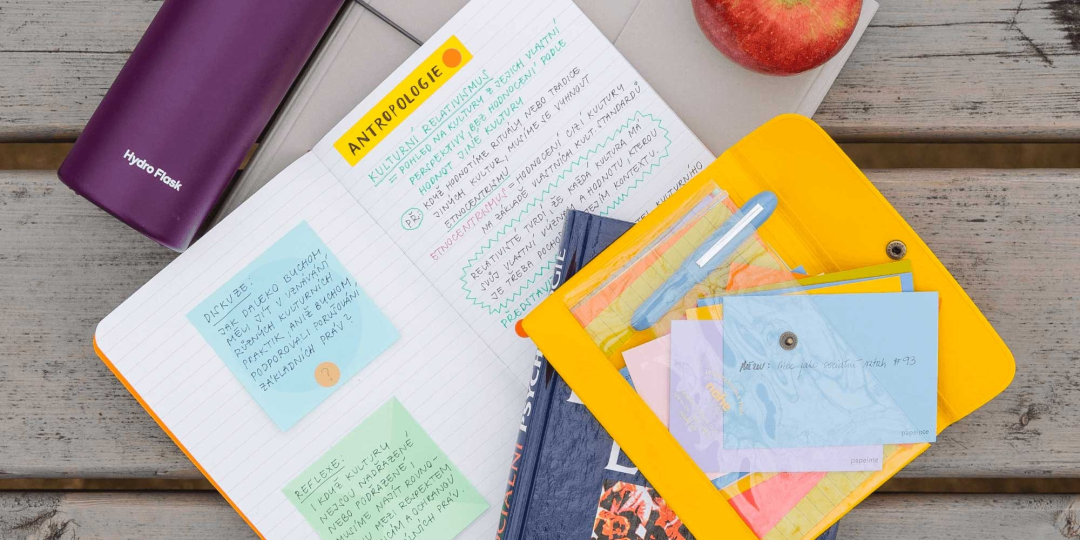 Hydro Flask
ANTROPOLOGIE
KULTURNÍ RELATIVISMUS
= POHLED NA KULTURY Z JEJICH VLASTNÍ
PERSPEKTIVY, BEZ HODNOCENÍ PODLE
HODNOT JINÉ KULTURY
PŘ. KDYŽ HODNOTÍME RITUÁLY NEBO TRADICE
JINÝCH KULTUR, MUSÍME SE VYHNOUT
ETNOCENTRISMU
ETNOCENTRISMUS = HODNOCENÍ CIZÍ KULTURY
NA ZÁKLADĚ VLASTNÍCH KULT. STANDARDŮ
RELATIVITA TVRDÍ, ŽE KAŽDÁ KULTURA MÁ
SVŮJ VLASTNÍ VÝZN A HODNOTU, KTEROU
JE TŘEBA POCHO JEJÍM KONTEXTU.
PŘEDSTAV TEL KULTURNÍHO
DISKUZE:
JAK DALEKO BYCHOM
MĚLI JÍT V UZNÁVÁNÍ
RŮZNÝCH KULTURNÍCH
PRAKTIK, ANIŽ BYCHOM
PODPOROVALI PORUŠOVÁNÍ
ZÁKLADNÍCH PRÁV?
?
REFLEXE:
I KDYŽ KULTURY
NEJSOU NADŘAZENÉ
NEBO PODŘAZENÉ,
MUSÍME NAJÍT ROVNO-
U MEZI RESPEKTEM
ÍM A OCHRANOU
NÍCH PRÁV
CIÁLNÍ PSYCH GIE
MENU: #93
papelote
papelote